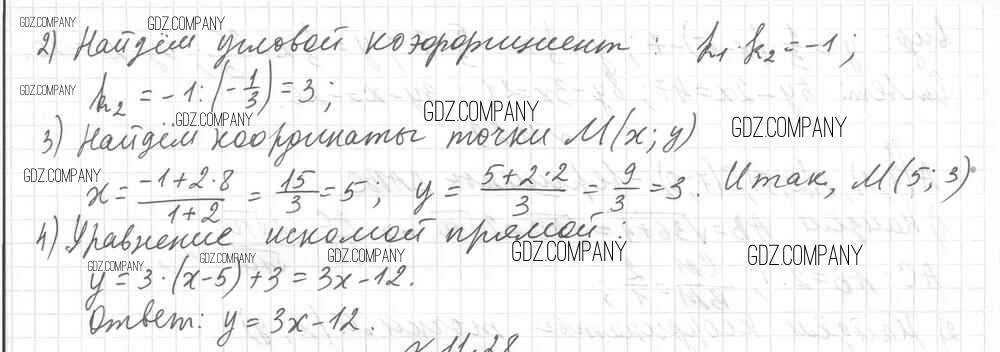 2) Найдём угловой коэффициент: k₁·k₂ = -1;
k₂ = -1 : (-1/3) = 3;
3) Найдём координаты точки M(x; y)
x = (-1+2·8)/(1+2) = 15/3 = 5; y = (5+2·2)/3 = 9/3 = 3. Итак, M(5; 3)
4) Уравнение искомой прямой:
y = 3·(x-5)+3 = 3x-12.
Ответ: y = 3x-12.
GDZ.COMPANY
GDZ.COMPANY
GDZ.COMPANY
GDZ.COMPANY
GDZ.COMPANY
GDZ.COMPANY
GDZ.COMPANY
GDZ.COMPANY
GDZ.COMPANY
GDZ.COMPANY
GDZ.COMPANY
GDZ.COMPANY